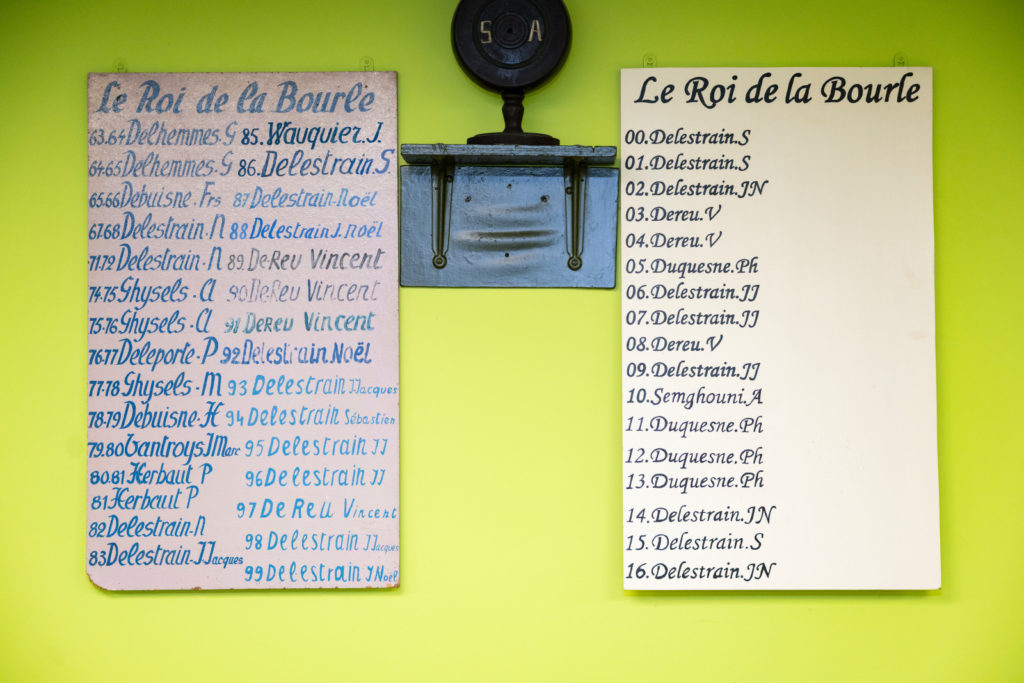 S A
Le Roi de la Bourle
63.64 Delhemmes.G
64.65 Delhemmes.G
65.66 Debuisne.Frs
67.68 Delestrain.N
71.72 Delestrain.N
74.75 Ghysels.Cl
75.76 Ghysels.Cl
76.77 Deleporte.P
77-78 Ghysels.M
78-79 Debuisne.H
79.80 Vantroys JMarc
80.81 Herbaut P
81 Herbaut P
82 Delestrain.N
83 Delestrain.JJacques
85. Wauquier.J.
86. Delestrain.S.
87 Delestrain.Noël
88 Delestrain J.noël
89. DeReu Vincent
90 DeReu Vincent
91 DeReu Vincent
92 Delestrain Noël
93 Delestrain JJacques
94 Delestrain Sébastien
95 Delestrain JJ
96 Delestrain JJ
97 De Reu Vincent
98 Delestrain JJacques
99 Delestrain JNoël
Le Roi de la Bourle
00.Delestrain.S
01.Delestrain.S
02.Delestrain.JN
03.Dereu.V
04.Dereu.V
05.Duquesne.Ph
06.Delestrain.JJ
07.Delestrain.JJ
08.Dereu.V
09.Delestrain.JJ
10.Semghouni.A
11.Duquesne.Ph
12.Duquesne.Ph
13.Duquesne.Ph
14.Delestrain.JN
15.Delestrain.S
16.Delestrain.JN